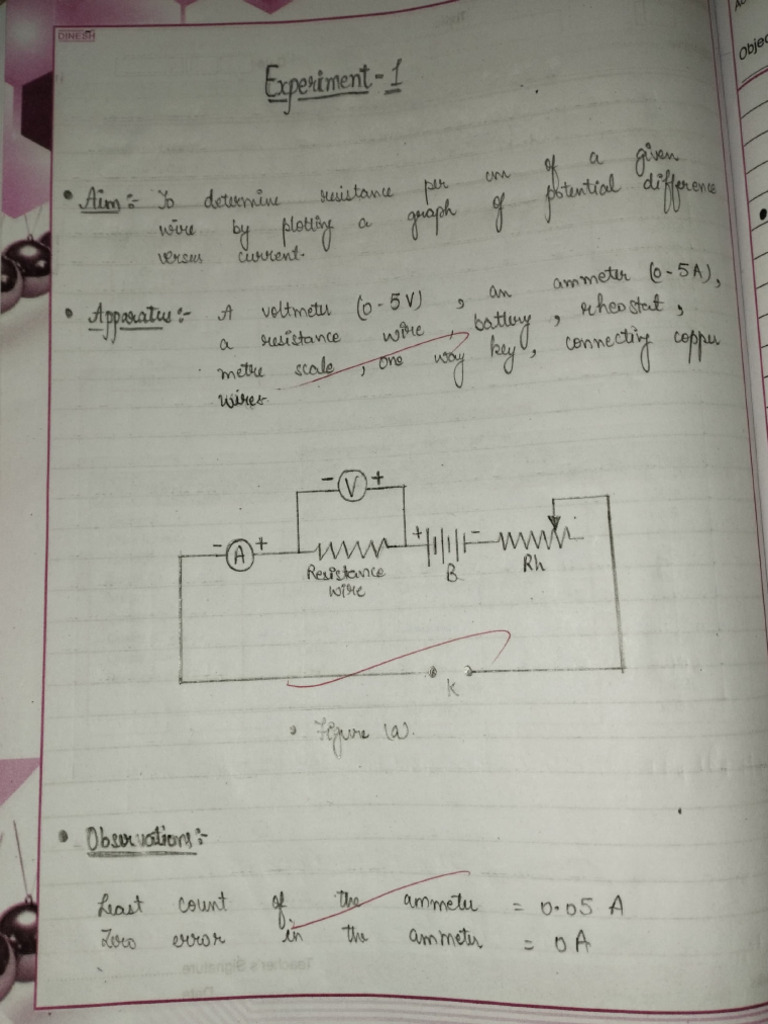 DINESH
Experiment-1
• Aim:- To determine resistance per cm of a given
wire by plotting a graph of potential difference
versus current.
• Apparatus:- A voltmeter (0-5V), an ammeter (0-5A),
a resistance wire, battery, rheostat,
metre scale, one way key, connecting copper
wires
- V +
- A +
+ -
Resistance
wire
B
Rh
K
• Figure (a).
• Observations:-
Least count of the ammeter = 0.05 A
Zero error in the ammeter = 0A
Teacher's Signature
Objec